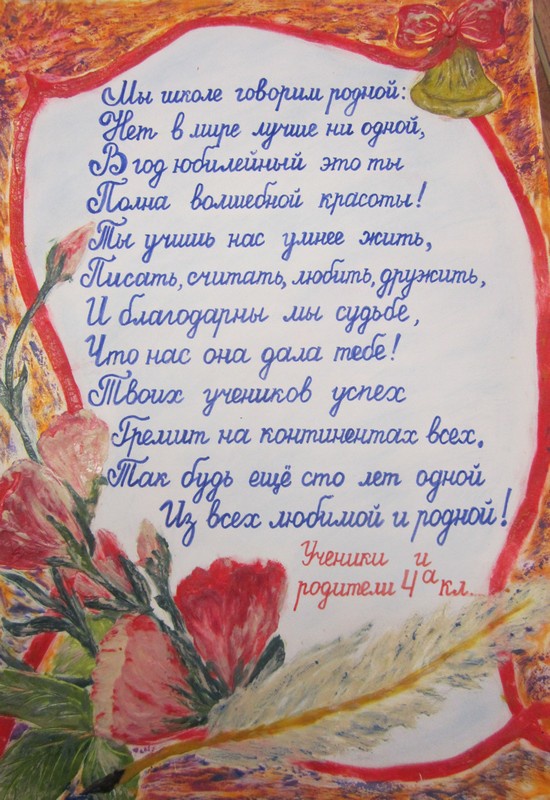 Мы школе говорим родной:
Нет в мире лучше ни одной,
В год юбилейный это ты
Полна волшебной красоты!
Ты учишь нас умнее жить,
Писать, считать, любить, дружить,
И благодарны мы судьбе,
Что нас она дала тебе!
Твоих учеников успех
Гремит на континентах всех.
Так будь ещё сто лет одной
Из всех любимой и родной!
Ученики и
родители 4а кл.